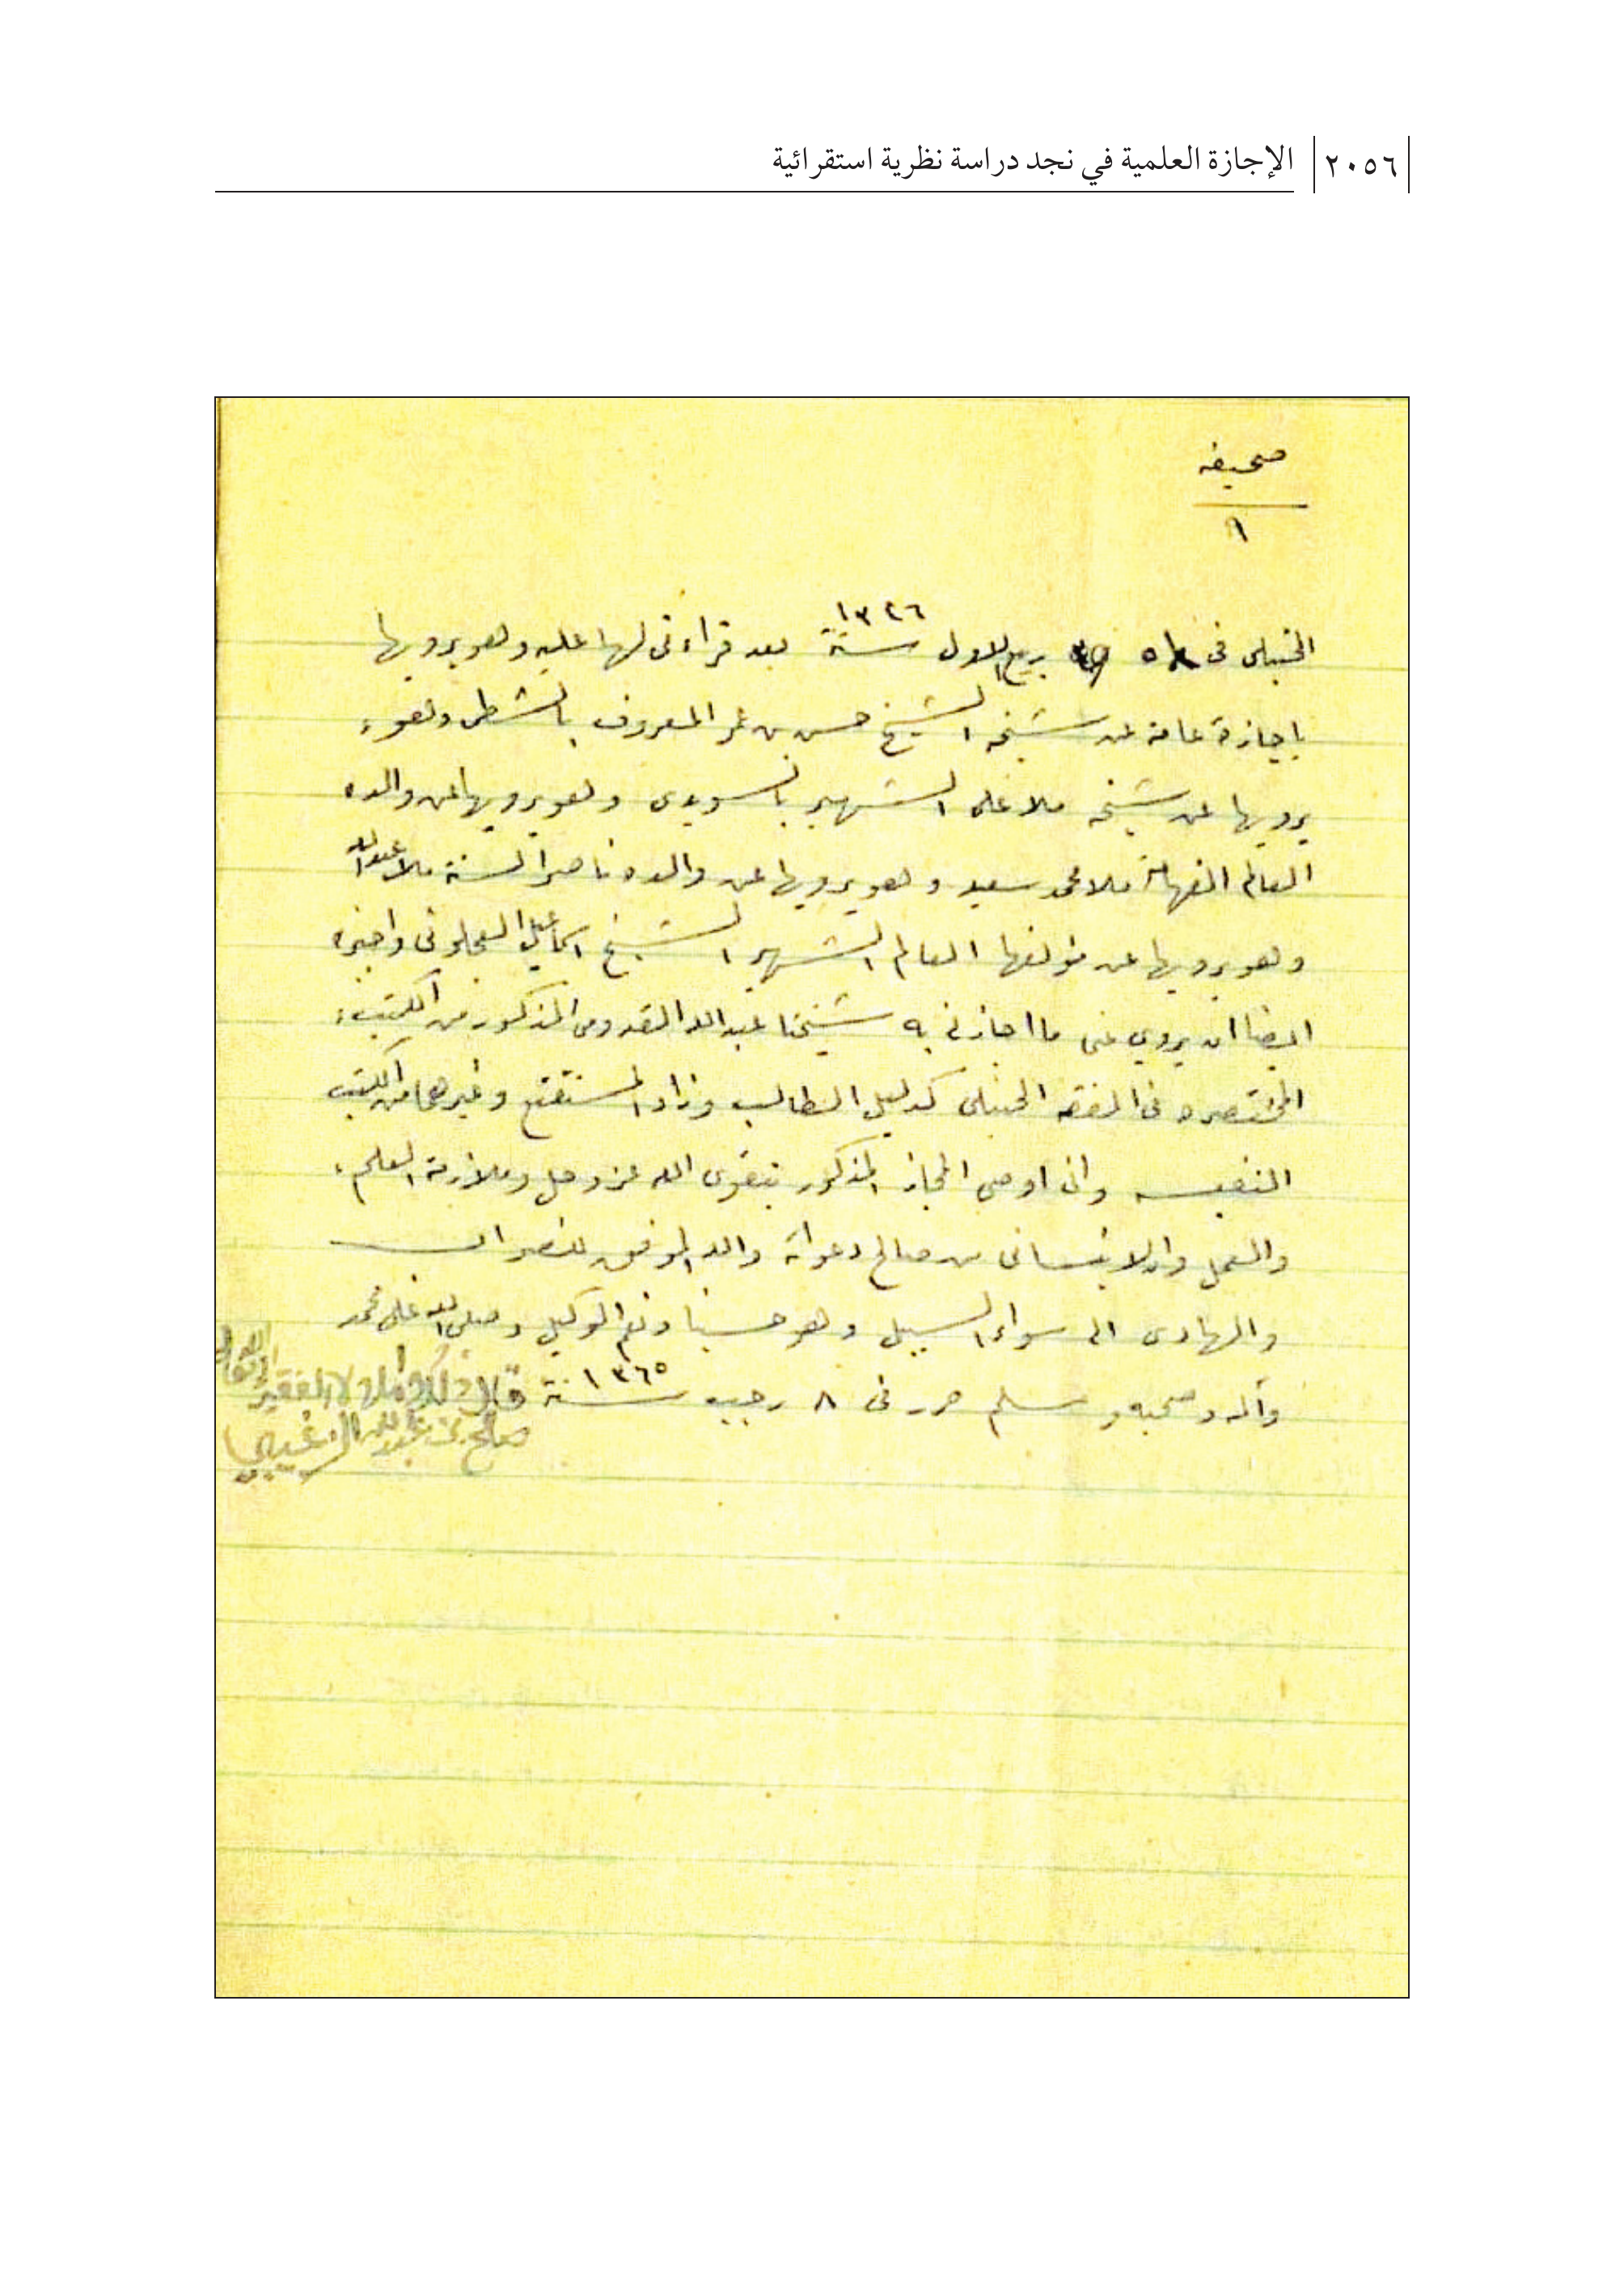 ٢٠٥٦ الإجازة العلمية في نجد دراسة نظرية استقرائية
صحيفه
٩
الحنبلى فى ربيع الاول سنة ١٣٢٦ بعد قراءتى لها عليه وهو يرويها
باجازة عامة عن شيخه الشيخ حسن بن عمر المعروف بالشطى وهو
يرويها عن شيخه ملا على الشهير بالسويدى وهو يرويها عن والده
العالم الفهامة ملا محمد سعيد وهو يرويها عن والده ناصر السنة ملا عبدالله
وهو يرويها عن مؤلفها العالم الشهير الشيخ اسماعيل العجلونى واجيزه
ايضا ان يروي عنى ما اجازنى به شيخنا عبدالله القدومى المذكور من الكتب
المختصره فى الفقه الحنبلى كدليل الطالب وزاد المستقنع وغيرهما من الكتب
النفيسه وانى اوصى المجاز المذكور بتقوى الله عز وجل وملازمة العلم
والعمل وان لا ينسانى من صالح دعواته والله الموفق للصواب
والهادى الى سواء السبيل وهو حسبنا ونعم الوكيل وصلى الله على محمد
وآله وصحبه وسلم حرر فى ٨ رجب سنة ١٣٦٥ قال ذلك واملاه الفقير الى الله تعالى
صالح بن عبدالله الزغيبي